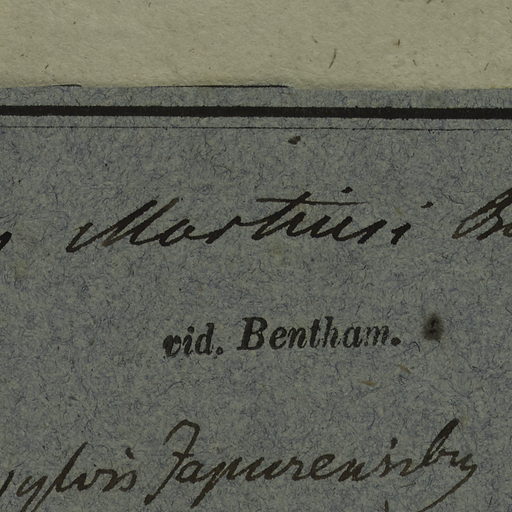 Martiusi
vid. Bentham.
sylvis Japurensibus